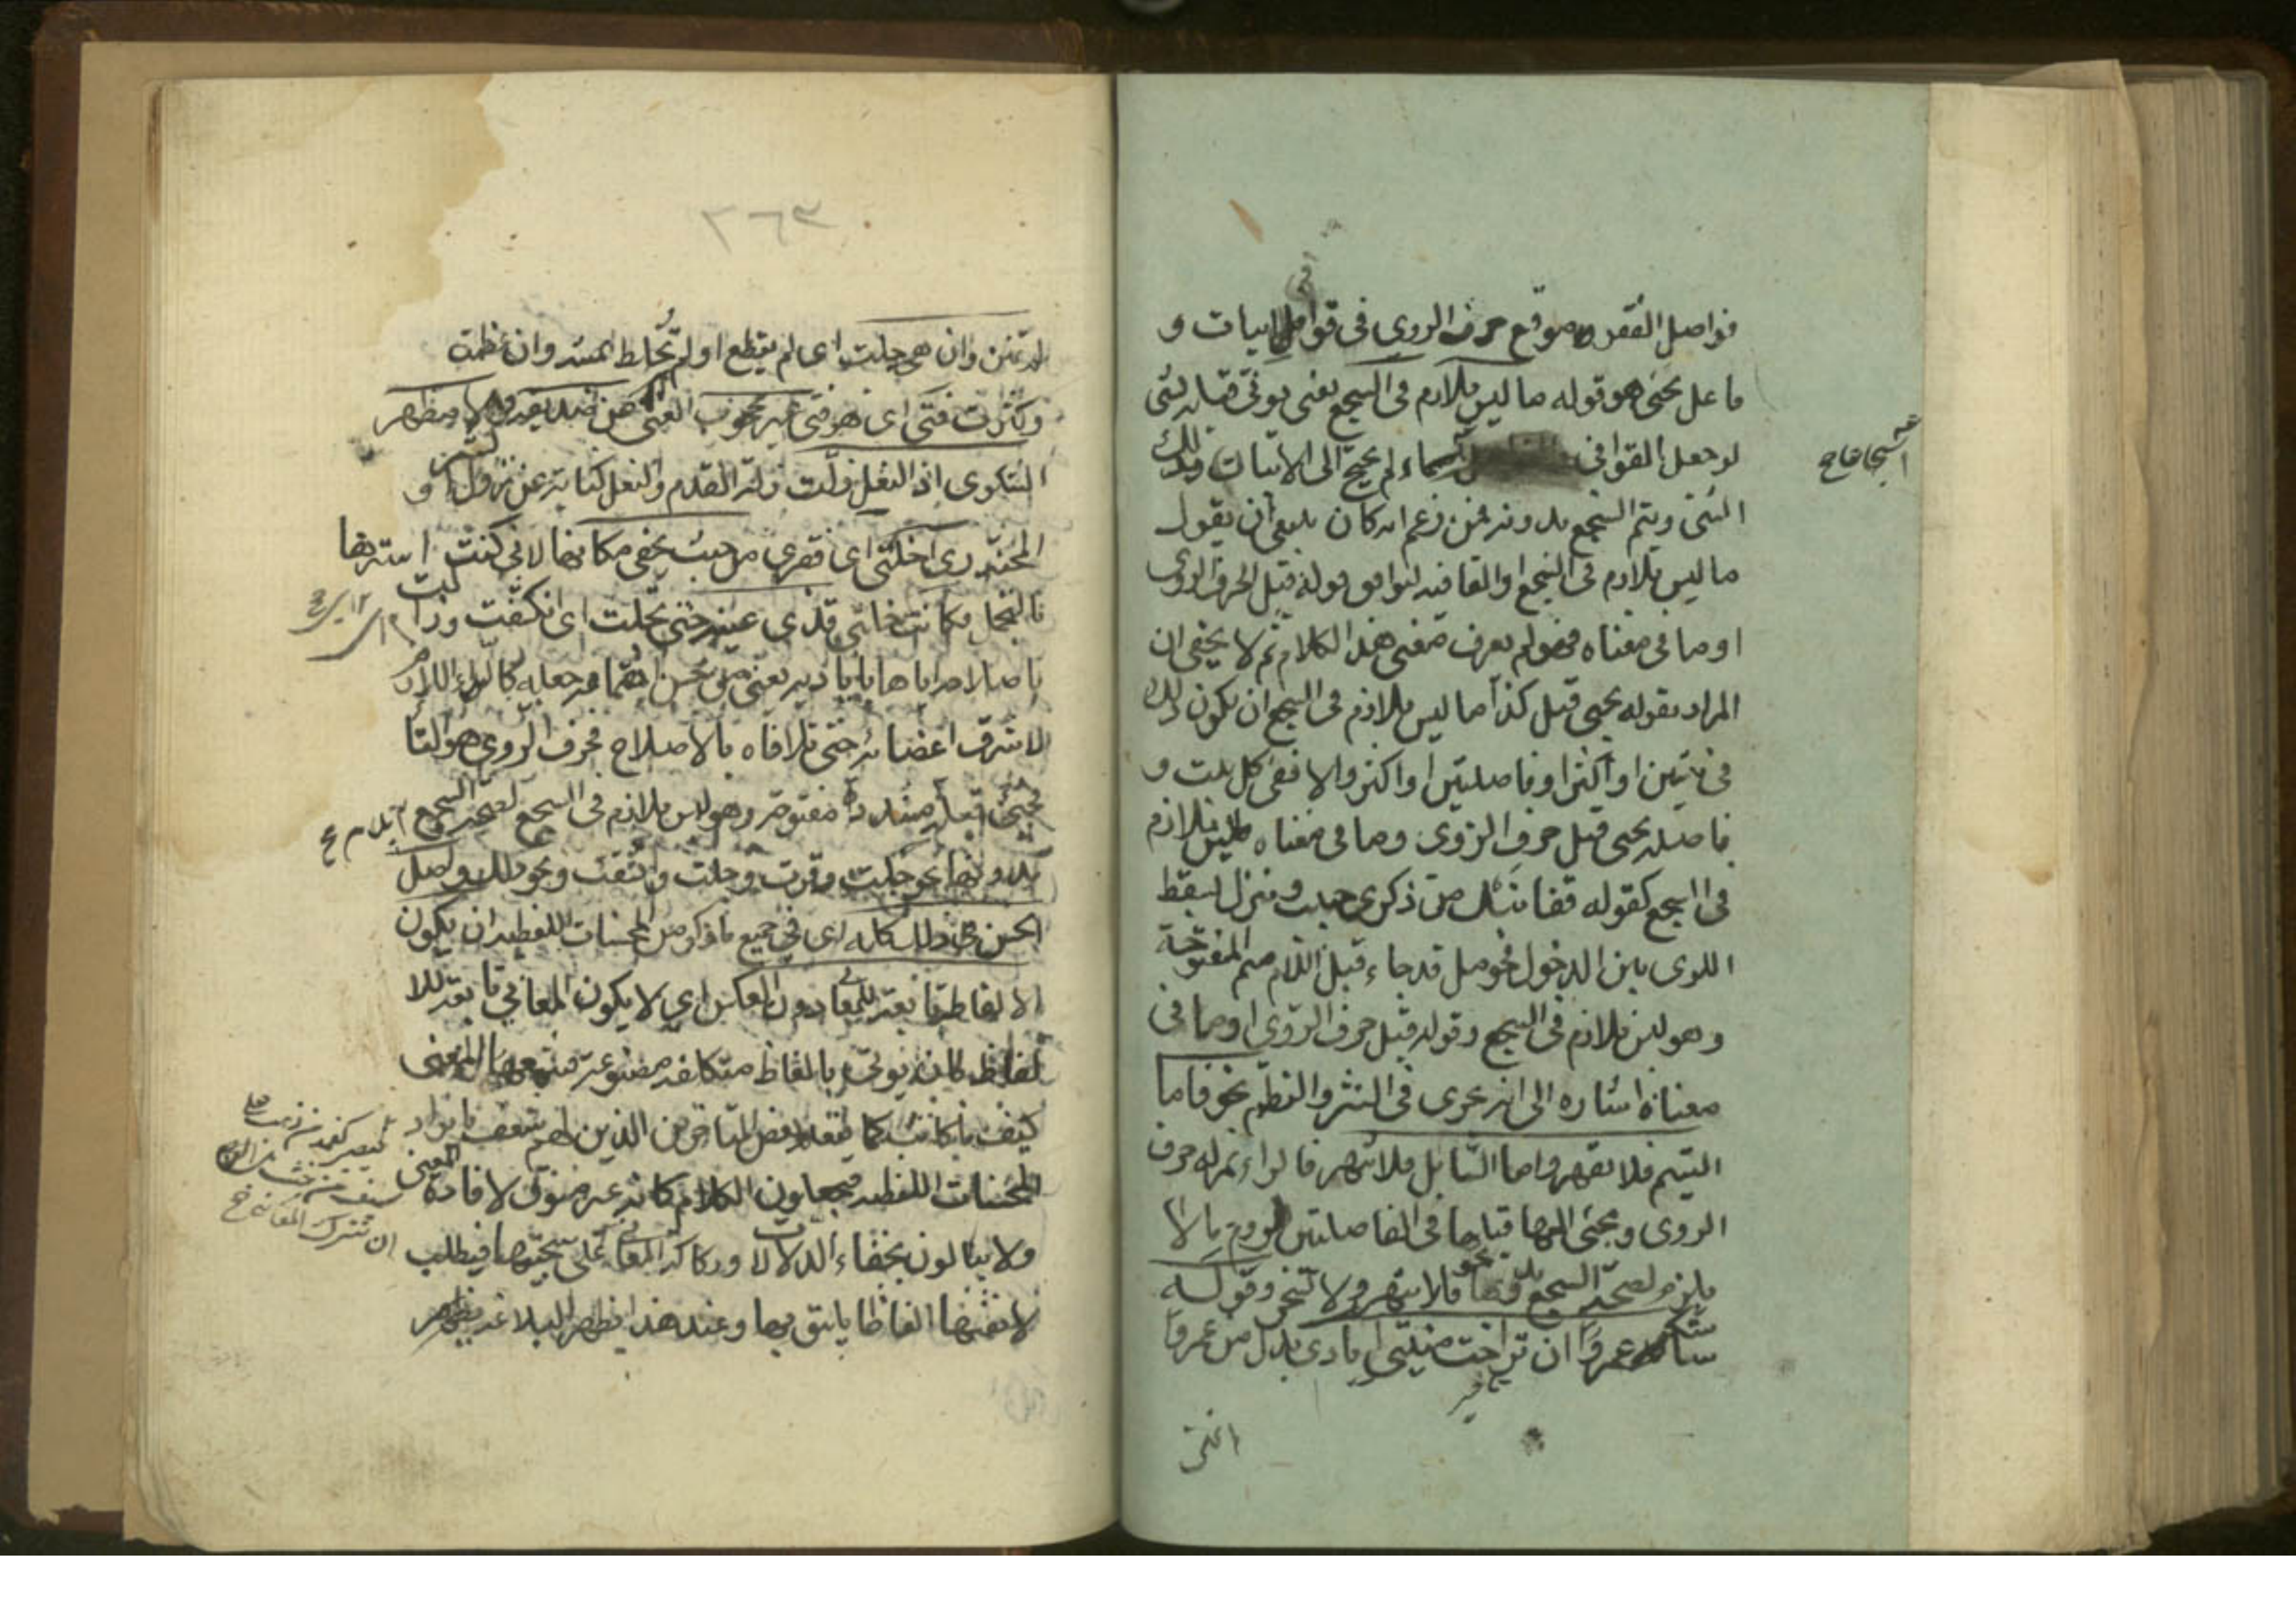 فواصل الفقر موقع حرف الروي في قوافي الابيات و
فاعل يجئ هو قوله ما ليس بلازم في السجع يعني يؤتى قبله بشئ
لو جعل القوافي اسماء لم يحتج الى الاتيان بذلك
اسجاعا صح
الشئ ويتم السجع بدونه فمن زعم انه كان ينبغي ان يقول
ما ليس بلازم في السجع او القافية ليوافق قوله قبل حرف الروي
او ما في معناه فهو لم يعرف معنى هذا الكلام ثم لا يخفى ان
المراد بقوله يجئ قبل كذا ما ليس بلازم في السجع ان يكون ذلك
في بيتين او اكثر او فاصلتين او اكثر والا ففي كل بيت و
فاصلة يجئ قبل حرف الروي وما في معناه ما ليس بلازم
في السجع كقوله قفا نبك من ذكرى حبيب ومنزل بسقط
اللوى بين الدخول فحومل قد جاء قبل اللام ميم مفتوحة
وهو ليس بلازم في السجع وقوله قبل حرف الروي او ما في
معناه اشارة الى انه يجري في النثر والنظم نحو فاما
اليتيم فلا تقهر واما السائل فلا تنهر فالراء بمنزلة حرف
الروي ومجئ الهاء قبلها في الفاصلتين لزوم ما لا
يلزم لصحة السجع بدونها نحو فلا تنهر ولا تسخر وقوله
ساشكر عمروا ان تراخت منيتي ايادي بدل من عمروا
اغنى
٢٦٣
لم تمنن وان هي جلت اي لم يقطع او لم تخلط بمنة وان عظمت
وكثرت فتى اي هو فتى غير محجوب الغنى عن صديقه ولا مظهر
الشكوى اذ النعل زلت زلة القدم والنعل كناية عن نزول الشر و
المحنة رأى خلتي اي فقري من حيث يخفى مكانها لاني كنت استرها
بالتجمل فكانت خلتي قذى عينيه حتى تجلت اي انكشفت وزالت
باصلاحه اياها باياديه يعني من حسن اهتمامه جعله كالداء اللازم
لاشرف اعضائه حتى تلافاه بالاصلاح فحرف الروي هو التا
يجئ قبله مشددة مفتوحة وهو ليس بلازم في السجع لصحة السجع
بدونها نحو جلت ومدت ومنت وانشقت ونحو ذلك واصل
الحسن في ذلك كله اي في جميع ما ذكر من المحسنات اللفظية ان يكون
الالفاظ تابعة للمعاني دون العكس اي لا يكون المعاني تابعة للا
لفاظ بان يؤتى بالفاظ متكلفة مصنوعة فيتبعها المعنى
كيف ما كانت كما يفعله بعض المتاخرين الذين لهم شغف بايراد
المحسنات اللفظية فيجعلون الكلام كانه غير مسوق لافادة المعنى
ولا يبالون بخفاء الدلالات وركاكة المعاني
ان تترك المعاني صح
على سجيتها فيطلب
لانفسها الفاظا يليق بها وعند هذا يظهر البلاغة ويظهر